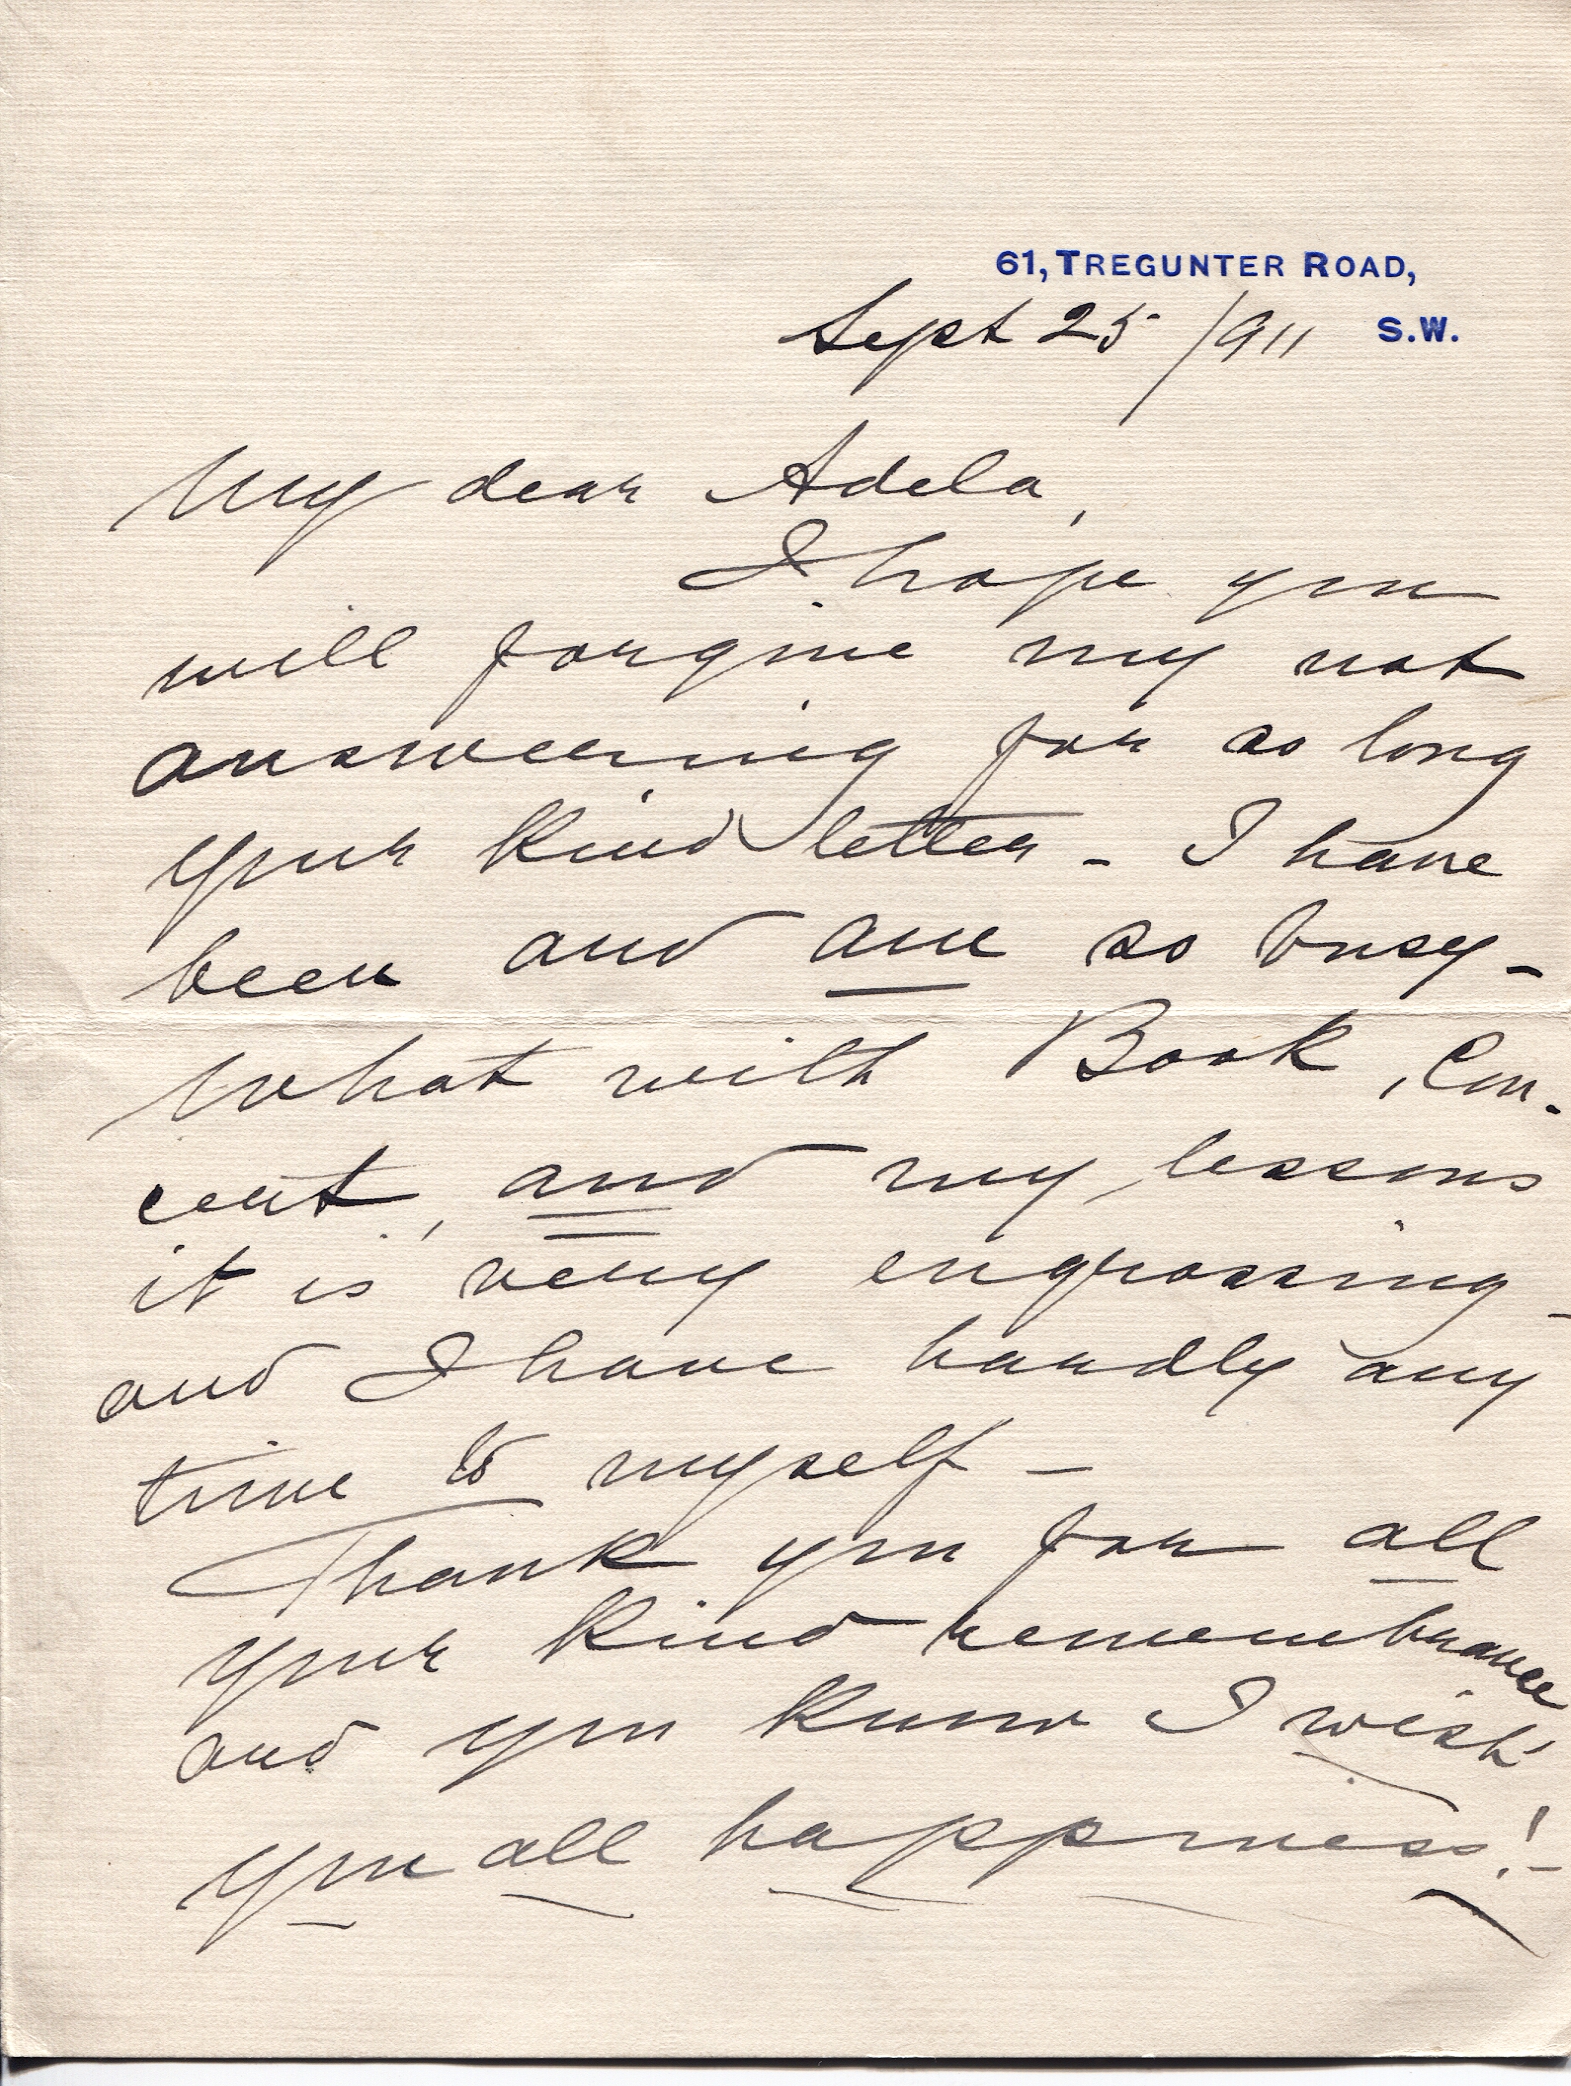 61, TREGUNTER ROAD,
S.W.
Sept 25 /911
My dear Adela,
I hope you
will forgive my not
answering for so long
your kind letter - I have
been and am so busy -
What with Book, Con-
cert, and my lessons
it is very engrossing -
and I have hardly any
time to myself -
Thank you for all
your kind remembrance
and you know I wish
you all happiness! -